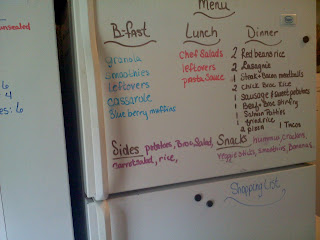 Menu
B-fast
Lunch
Dinner
unsealed
6
4
es: 6
Granola
Smoothies
leftovers
Casserole
Blueberry muffins
Chef Salads
leftovers
pasta Sauce
2 Red beans rice
2 Lasagnas
1 Steak + Bacon meatballs
2 Chick Broc Rice
1 Sausage & Sweet potatoes
1 Beef + Broc Stir fry
1 Salmon Patties
1 fried rice
2 pizza
1 Tacos
Sides potatoes, Broc Salad,
carrot salad, rice,
Snacks hummus, crackers,
veggie sticks, smoothies, bananas
Shopping List